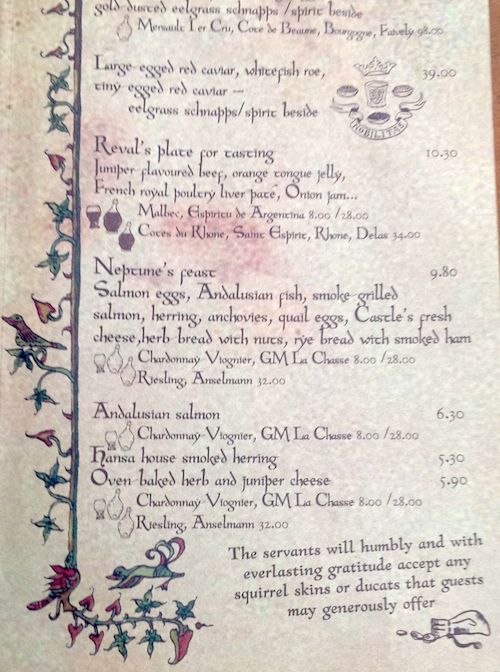 gold dusted eelgrass schnapps / spirit beside
Mersault 1'er Cru, Cote de Beaune, Bourgogne, Faively 98.00
Large-egged red caviar, whitefish roe, 39.00
tiny-egged red caviar –
eelgrass schnapps/spirit beside
NOBILITAS
Reval's plate for tasting 10.30
Juniper flavoured beef, orange tongue jelly,
French royal poultry liver paté, Onion jam...
Malbec, Espiritu de Argentina 8.00 /28.00
Cotes du Rhone, Saint Esprit, Rhone, Delas 34.00
Neptune's feast 9.80
Salmon eggs, Andalusian fish, smoke-grilled
salmon, herring, anchovies, quail eggs, Castle's fresh
cheese,herb bread with nuts, rye bread with smoked ham
Chardonnay-Viognier, GM La Chasse 8.00 /28.00
Riesling, Anselmann 32.00
Andalusian salmon 6.30
Chardonnay-Viognier, GM La Chasse 8.00 /28.00
Hansa house smoked herring 5.30
Oven-baked herb and juniper cheese 5.90
Chardonnay-Viognier, GM La Chasse 8.00 /28.00
Riesling, Anselmann 32.00
The servants will humbly and with
everlasting gratitude accept any
squirrel skins or ducats that guests
may generously offer